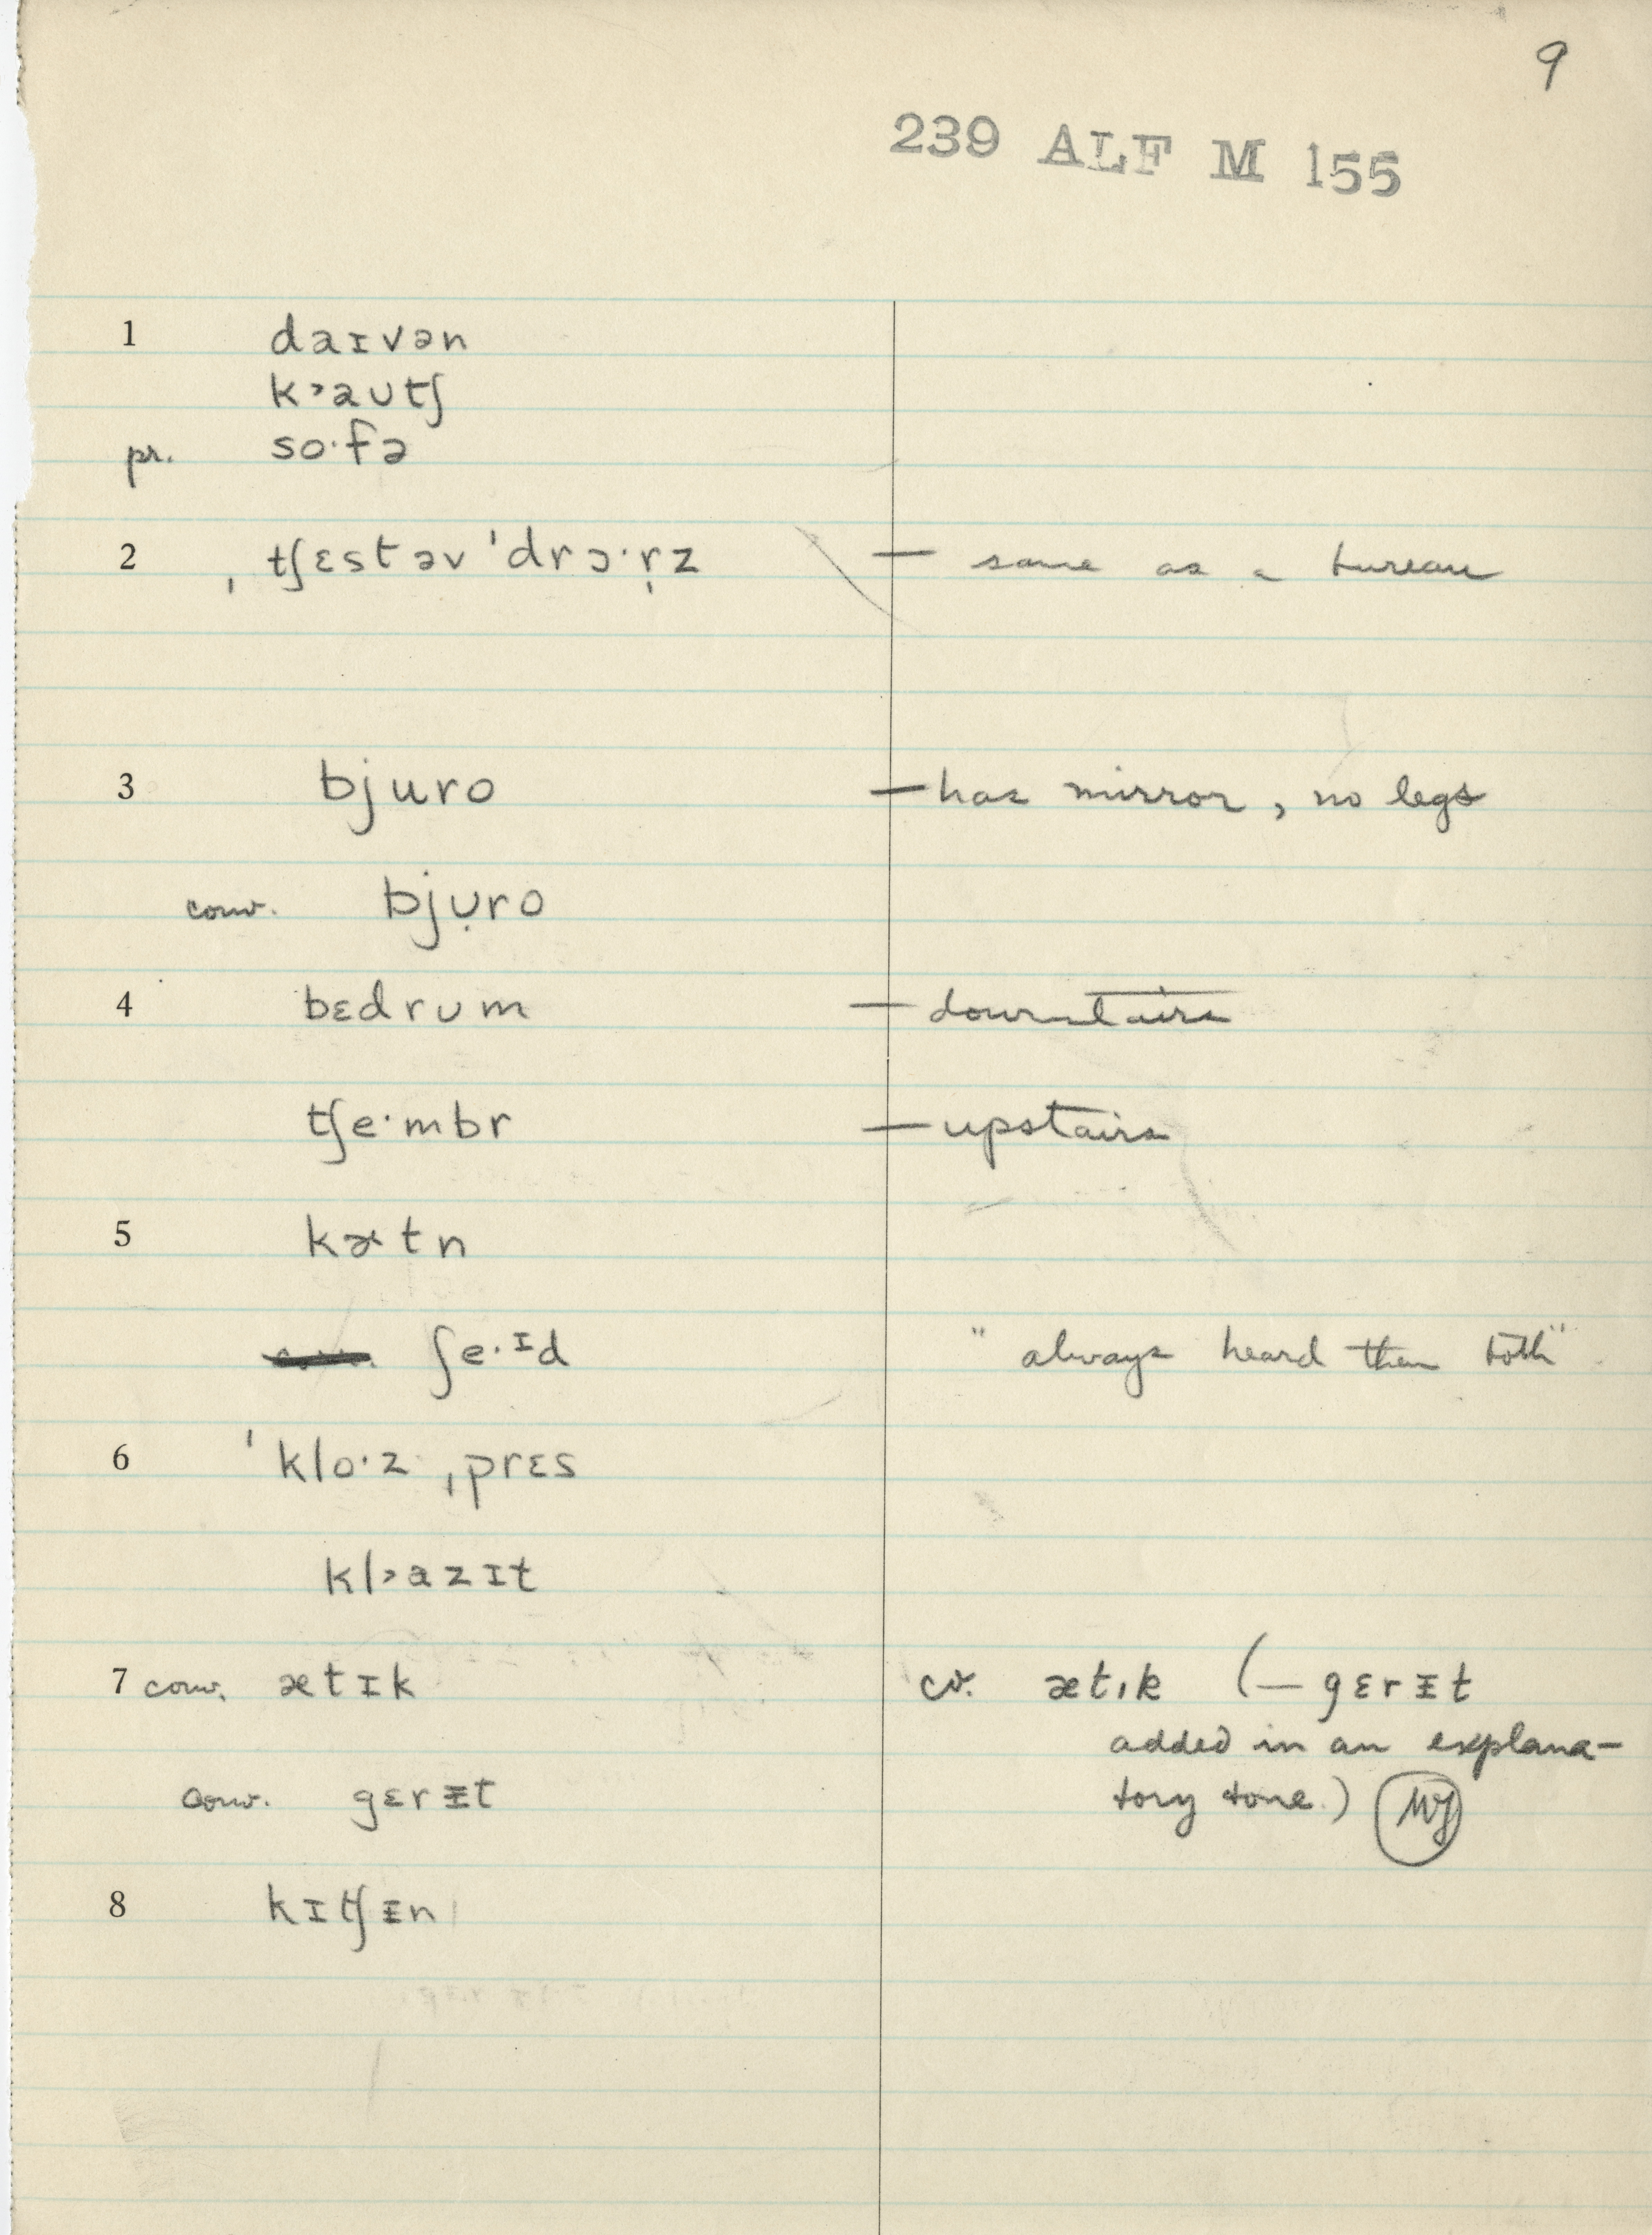 9
239 ALF M 155
1 daɪvən
k˃aʊtʃ
pr. so·fə
2 ˌtʃɛstəvˈdrɔ·ṛz — same as a bureau
3 bjuro — has mirror, no legs
conv. bjʊ̣ro
4 bɛdrʊm — downstairs
tʃe·mbr — upstairs
5 kɚtn
ʃe·ᶦd "always heard them both"
6 ˈklo·z ˌprɛs
kl˃azɪt
7 conv. ætɪk cv. ætɪk (— gɛrᵻt
added in an explana-
conv. gɛrᵻt tory tone.)
8 kɪtʃᵻn